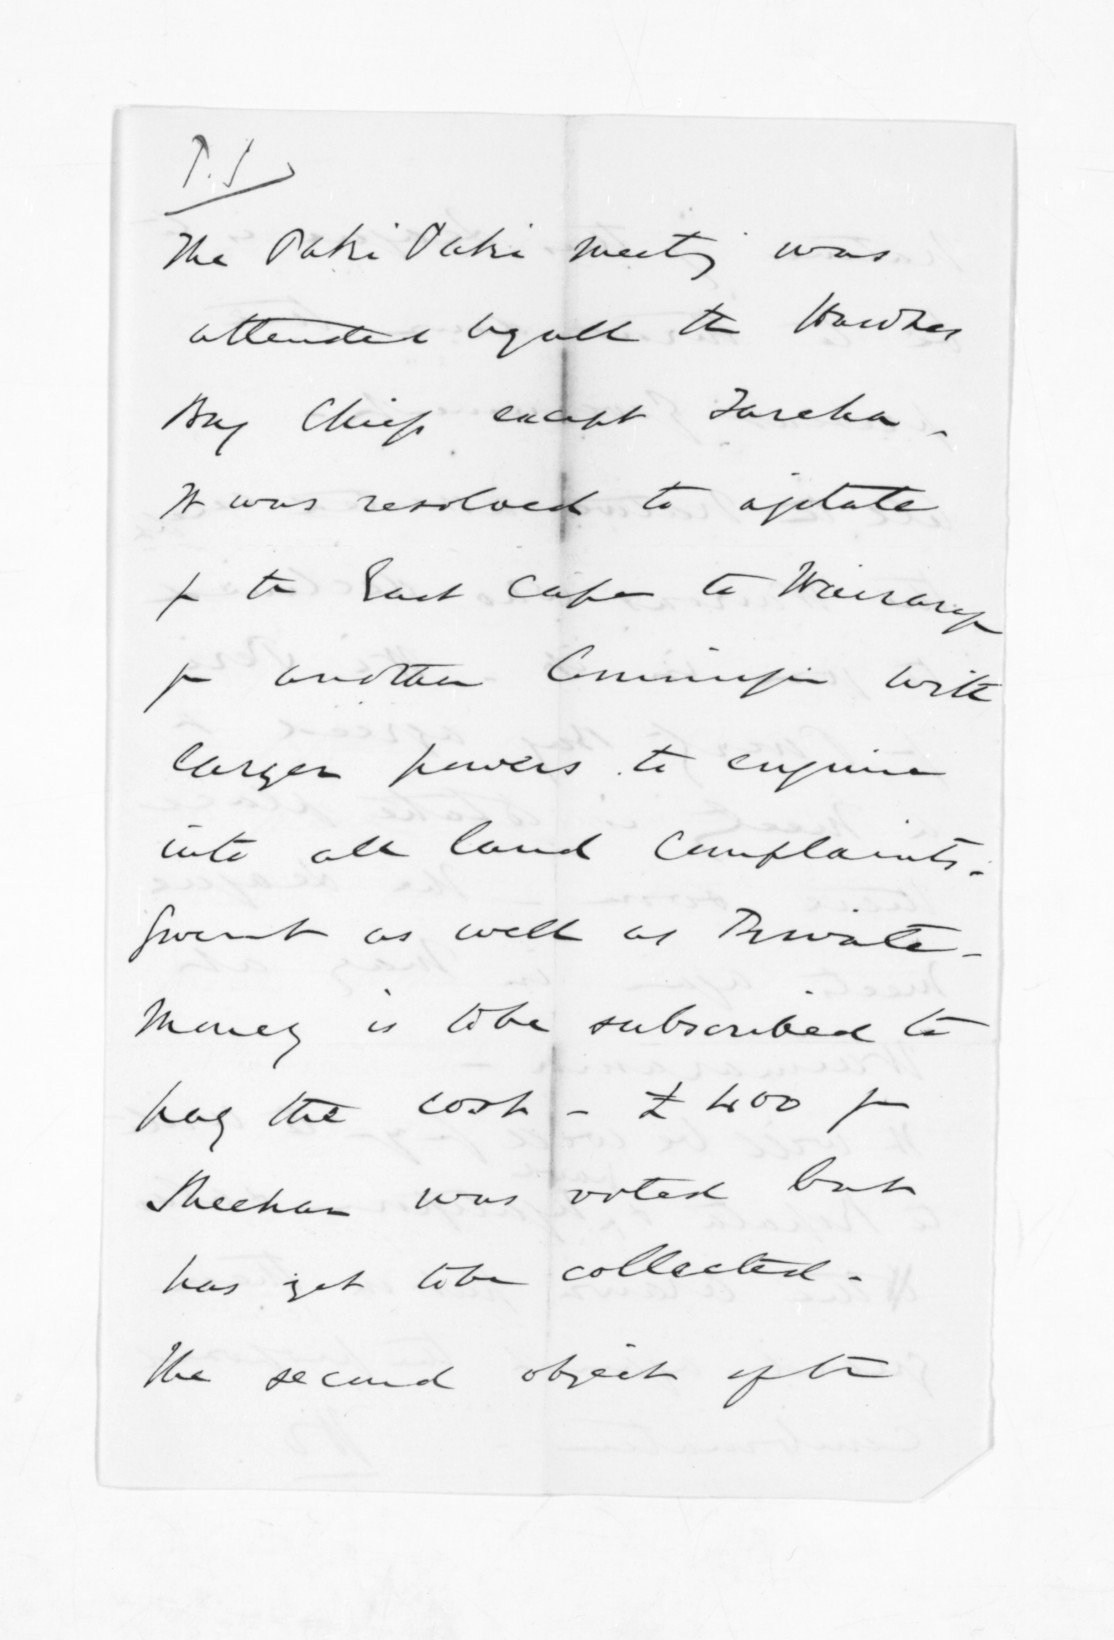 P.S
The Paki Paki meeting was
attended by all the Hawkes
Bay Chiefs except Tareha -
It was resolved to agitate
fr the East Cape to Wairarapa
for another Commission with
larger powers to enquire
into all land complaints -
Government as well as Private -
Money is to be subscribed to
pay the cost - £400 for
Sheehan was voted but
has yet to be collected -
The second object of the